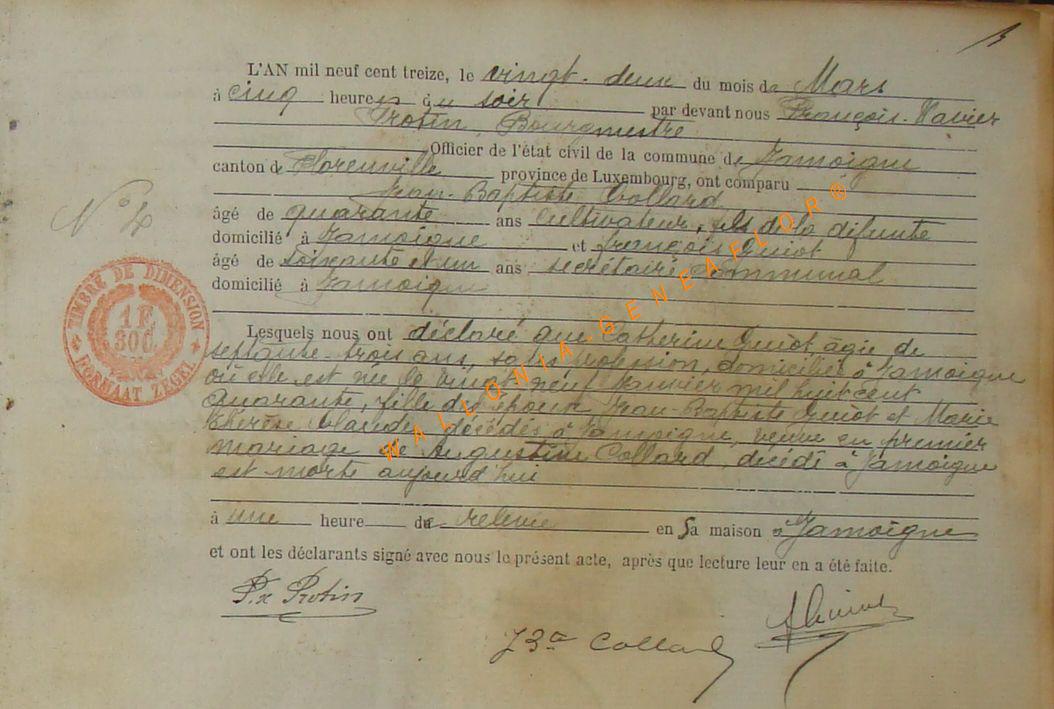 L'AN mil neuf cent treize, le vingt-deux du mois de Mars
à cinq heures du soir par devant nous François-Xavier
Protin, Bourgmestre
Officier de l'état civil de la commune de Jamoigne
canton de Florenville province de Luxembourg, ont comparu
Jean-Baptiste Collard
âgé de quarante ans cultivateur, fils de la défunte
domicilié à Jamoigne et François Guiot
âgé de soixante et un ans secrétaire communal
domicilié à Jamoigne
Lesquels nous ont déclaré que Catherine Guiot âgée de
septante-trois ans, sans profession, domiciliée à Jamoigne
où elle est née le vingt neuf Janvier mil huit cent
quarante, fille des époux Jean-Baptiste Guiot et Marie
Thérèse décédés à Jamoigne, veuve en premier
mariage de Augustin Collard, décédé à Jamoigne
est morte aujourd'hui
à une heure de relevée en sa maison à Jamoigne
et ont les déclarants signé avec nous le présent acte, après que lecture leur en a été faite.
Px Protin
JBte Collard
N° 4
TIMBRE DE DIMENSION
1 F.
30 C.
FORMAAT ZEGEL
WALLONIA-GENEAFLOR®